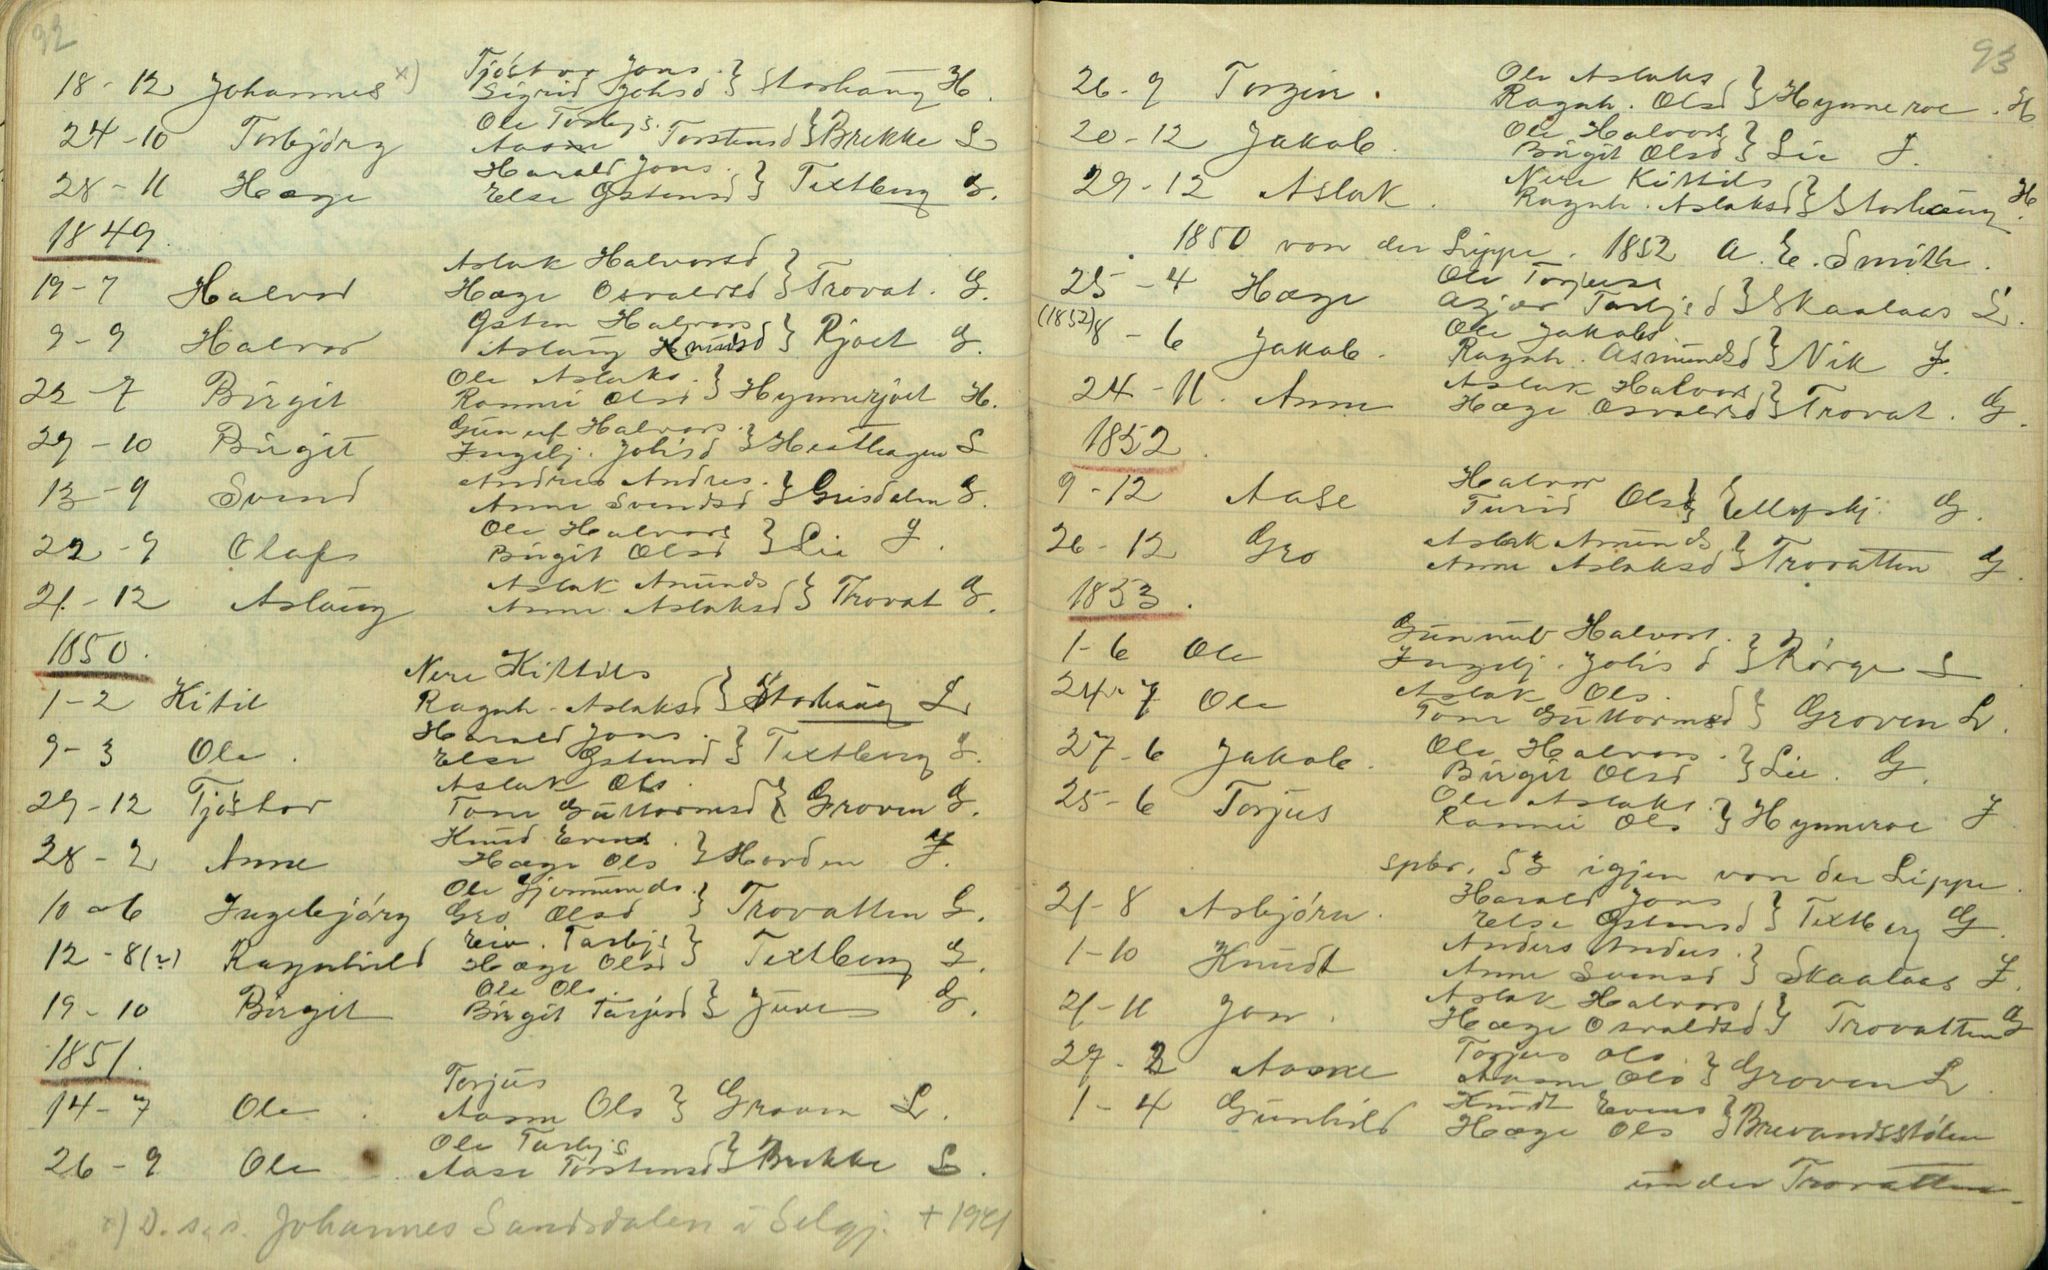 92
18 - 12 Johannes x) Tjöstov Jons. } Storhaug H.
Sigrid Johsd
24 - 10 Torbjörg Ole Torbjs. } Brekke L
Aasne Torstensd
28 - 11 Hæge Harald Jons. } Textberg G.
Else Östensd
1849.
19 - 7 Halvor Aslak Halvorsd } Trovat. G.
Hæge Osvaldsd
9 - 9 Halvor Östen Halvors } Rjoet G.
Aslaug Knudsd
22 - 7 Birgit Ole Aslaks. } Hynnerjoet H.
Ronnei Olsd
29 - 10 Birgit Gunulf Halvors. } Hesthagen L
Ingebj. Johsd
13 - 9 Svend Andres Andres. } Grisdalen G.
Anne Svendsd
22 - 9 Olaf Ole Halvors } Lie J.
Birgit Olsd
21 - 12 Aslaug Aslak Amunds } Trovat G.
Anne Aslaksd
1850.
1 - 2 Kitil Neri Kittils } Storhaug L
Ragnh. Aslaksd
9 - 3 Ole. Harald Jons. } Textberg G.
Else Östensd
29 - 12 Tjöstov Aslak Ols. } Groven G.
Tone Guttormsd
28 - 2 Anne Knud Evens. } Horden J.
Hæge Ols
10 - 6 Ingebjörg Ole Gjermunds. } Trovatten G.
Gro Olsd
12 - 8 (?) Ragnhild Eiv. Torbjs } Textberg G.
Hæge Olsd
19 - 10 Birgit Ole Ols. } Juven G.
Birgit Torjusd
1851.
14 - 7 Ole. Torjus } Groven L.
Aasne Ols
26 - 9 Ole Ole Torbjs } Brekke L.
Aase Torstensd
x) D. s. s. Johannes Sandsdalen i Selgj. + 1941
93
26 - 9 Torgin. Ole Aslaks } Hynneroe. H
Ragnh. Olsd
20 - 12 Jakob. Ole Halvors } Lie J.
Birgit Olsd
29 - 12 Aslak. Neri Kittils } Storhaug H.
Ragnh. Aslaksd
1850 von der Lippe. 1852 A. E. Smith.
25 - 4 Hæge Ole Torjuss } Skaalaas L.
Asjer Torbjsd
(1852) 8 - 6 Jakob. Ole Jakobs. } Vik J.
Ragnh. Asmundsd
24 - 11. Anne Aslak Halvors } Trovat. G.
Hæge Osvaldsd
1852.
9 - 12 Aase Halvor } Ellefskj. G.
Turid Olsd
26 - 12 Gro Aslak Amunds } Trovatten G.
Anne Aslaksd
1853.
1 - 6 Ole Gunnulv Halvors. } Rörge L
Ingebj. Johsd
24 - 7 Ole Aslak Ols. } Groven L.
Tone Guttormsd
27 - 6 Jakob. Ole Halvors. } Lie. G.
Birgit Olsd
25 - 6 Torjus Ole Aslaks. } Hynneroe J
Ronnei Ols
spbr. 53 igjen von der Lippe.
21 - 8 Asbjörn. Harald Jons } Textberg G.
Else Östensd
1 - 10 Knudt Anders Anders. } Skaalaas J.
Anne Svensd
21 - 11 Jon. Aslak Halvors } Trovatten G
Hæge Osvaldsd
27 - 2 Aasne Torjus Ols. } Groven L.
Aasne Ols
1 - 4 Gunhild Knudt Evens } Brevandsstölen
Hæge Ols
under Trovatten